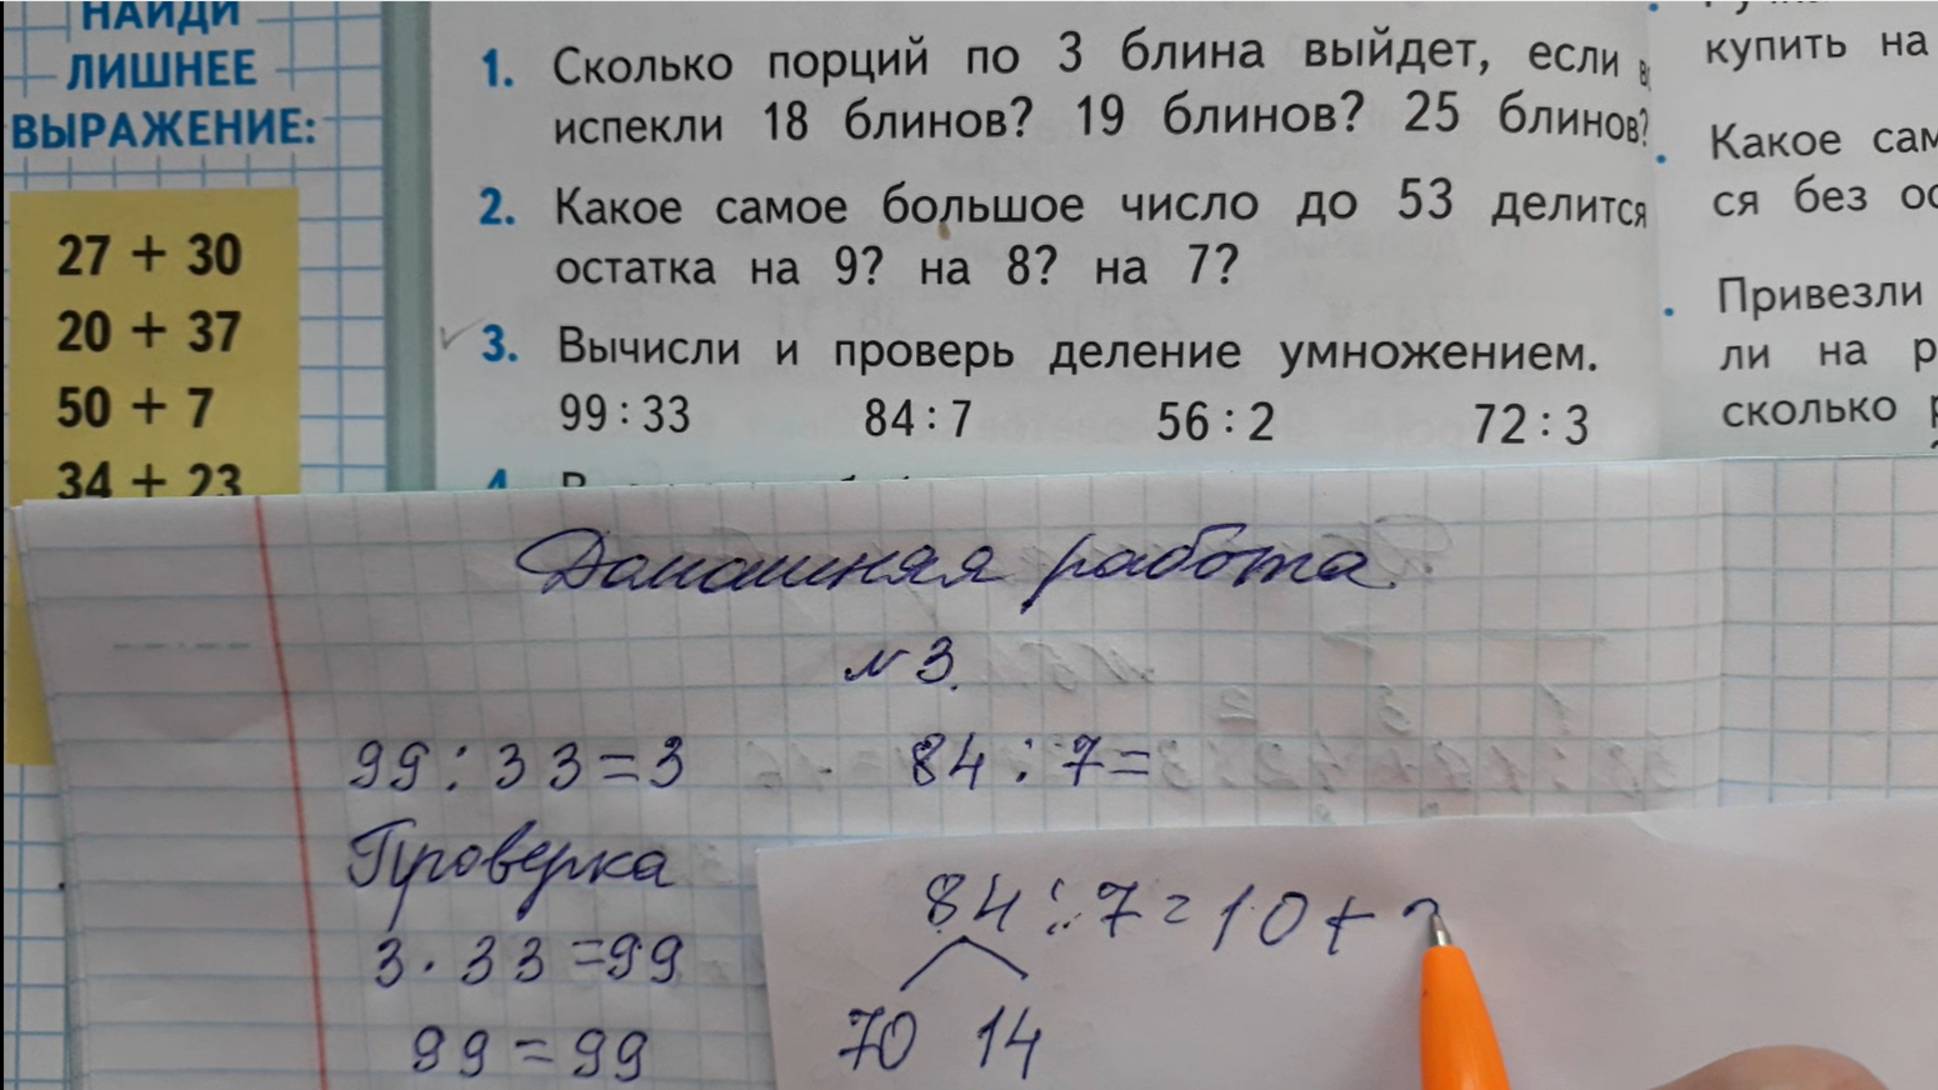 НАЙДИ
ЛИШНЕЕ
ВЫРАЖЕНИЕ:
27 + 30
20 + 37
50 + 7
34 + 23
1. Сколько порций по 3 блина выйдет, если
испекли 18 блинов? 19 блинов? 25 блинов?
2. Какое самое большое число до 53 делится
остатка на 9? на 8? на 7?
3. Вычисли и проверь деление умножением.
99 : 33 84 : 7 56 : 2 72 : 3
4.
купить на
Какое
ся без
Привезли
ли на
сколько
Домашняя работа
№ 3.
99 : 33 = 3 84 : 7 =
Проверка
3 · 33 = 99
99 = 99
84 : 7 = 10 +
70 14